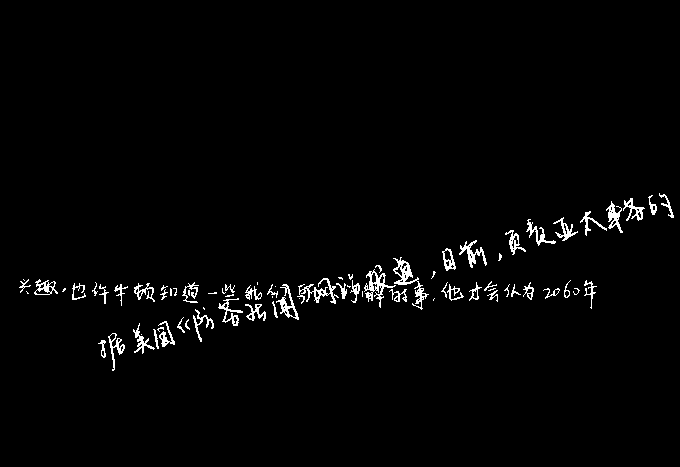 兴趣,也许牛顿知道一些我们的事,他才会认为2060年
据美国《防务新闻》网站报道,目前,负责亚太事务的